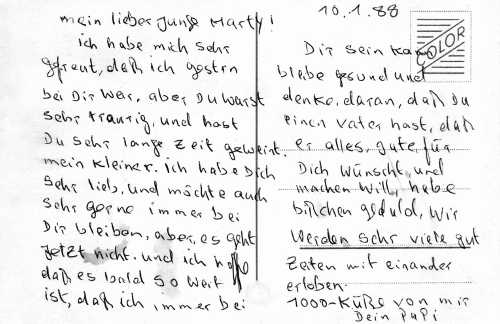 10.1.88
mein lieber Junge Marty!
ich habe mich sehr
gefreut, daß ich gestrn
bei Dir war, aber Du warst
sehr traurig, und hast
Du sehr lange Zeit geweint.
mein Kleiner. ich habe Dich
sehr lieb, und möchte auch
sehr gerne immer bei
Dir bleiben, aber, es geht
jetzt nicht. und ich hoffe
daß es bald so weit
ist, daß ich immer bei
COLOR
Dir sein kan
bleibe gesund und
denke, daran, daß Du
einen Vater hast, daß
er alles, gute, für
Dich wünscht, und
machen will, habe
bißchen geduld, wir
werden sehr viele gut
Zeiten mit einander
erleben.
1000-Küße von mir
Dein Papi